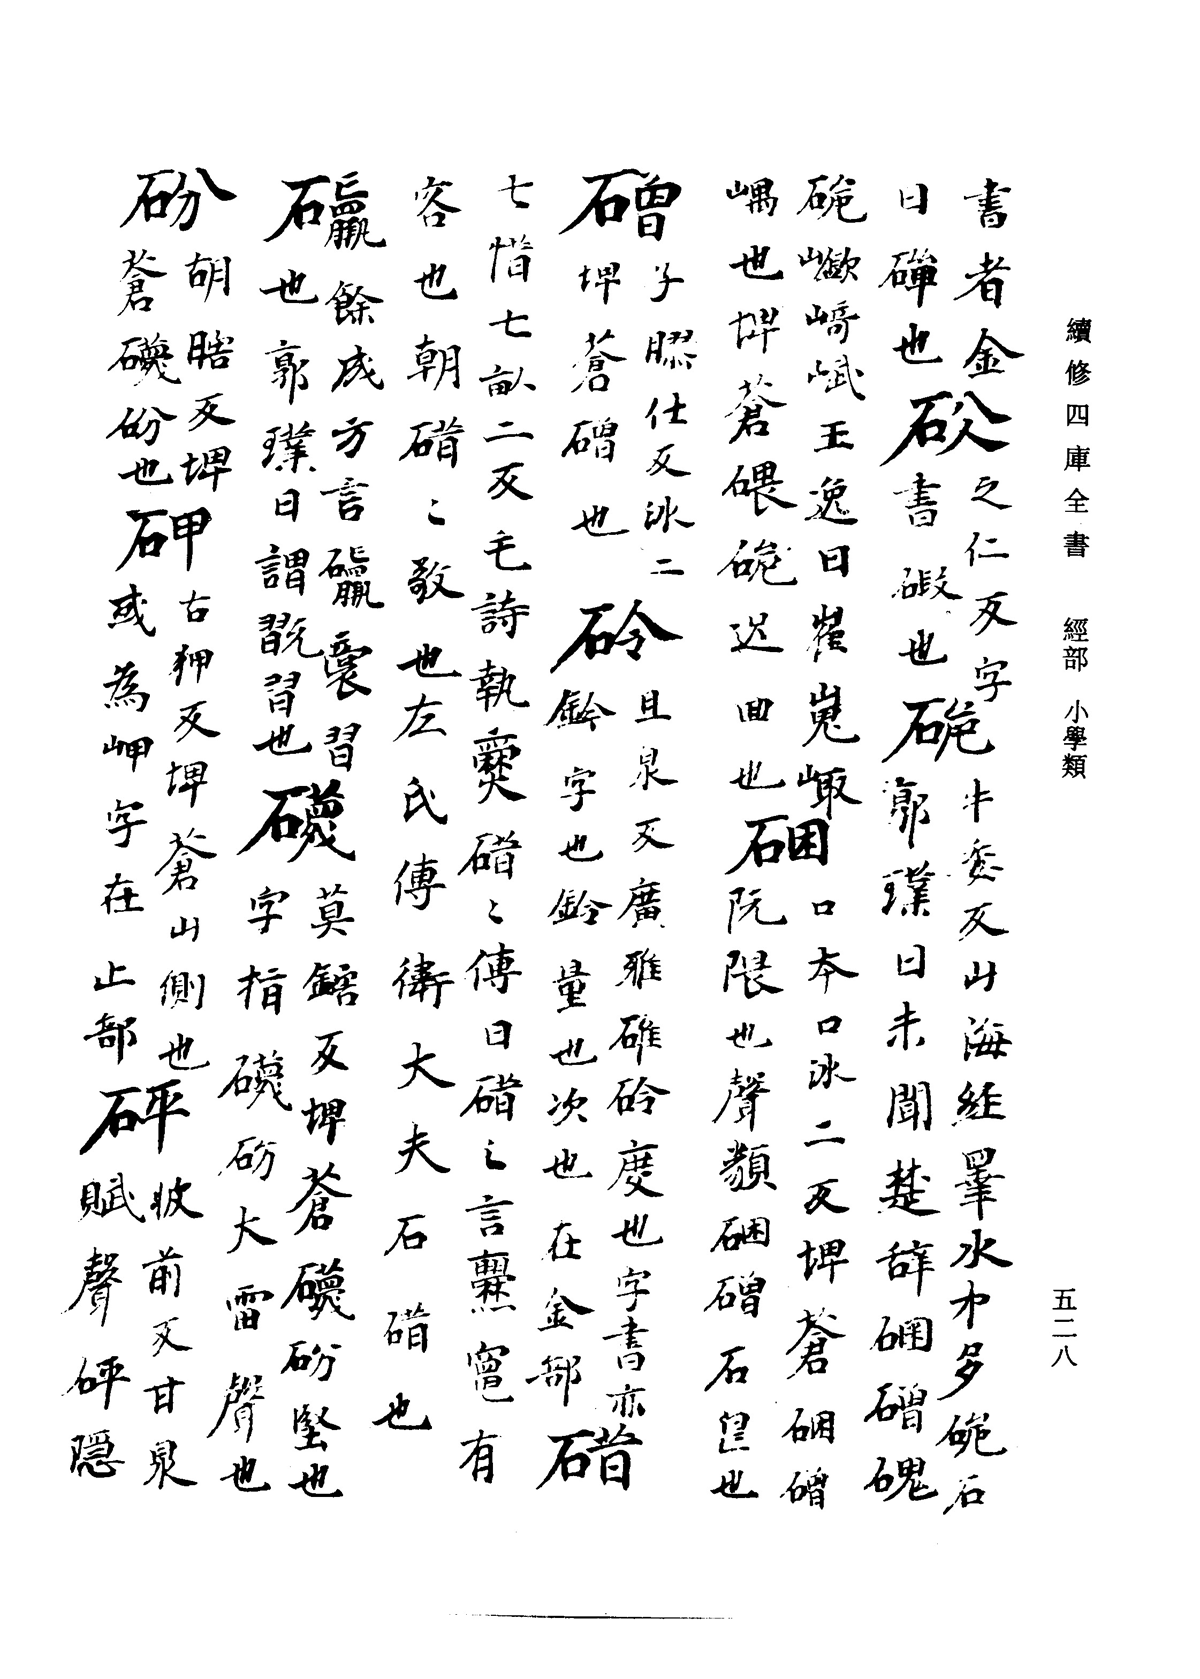 續修四庫全書 經部 小學類
五二八
書者金
曰磾也
砅
之仁反字
書碬也
硊
牛委反山海經睪水中多硊石
郭璞曰未聞楚辭硱磳磈
硊巇崎峨王逸曰崔嵬嶮
嵎也埤蒼碨硊迟回也
硱
口本口冰二反埤蒼硱磳
阮限也聲類硱磳石皃也
磳
子膠仕反冰二
埤蒼磳也
砱
且泉反廣雅碓砱度也字書亦
鈴字也鈴量也次也在金部
碏
七惜七畝二反毛詩執爨碏〻傳曰碏之言爨竈有
容也朝碏〻敬也左氏傳衛大夫石碏也
礵
餘成方言䃷裹習
也郭璞曰謂翫習也
礣
莫鎋反埤蒼礣砏堅也
字指礣砏大雷聲也
砏
胡瞎反埤
蒼礣砏也
砷
古狎反埤蒼山側也
或為岬字在山部
砰
披前反甘泉
賦聲砰隱